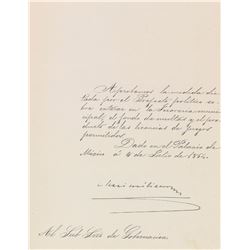 Aprobamos la medida dic-
tada por el Prefecto político so-
bre entrar en la Tesorería muni-
cipal, el fondo de multas y el pro-
ducto de las licencias de juegos
permitidos.
Dado en el Palacio de
México á 4 de Julio de 1864.
Maximiliano
Al Sub Srio de Gobernacion.